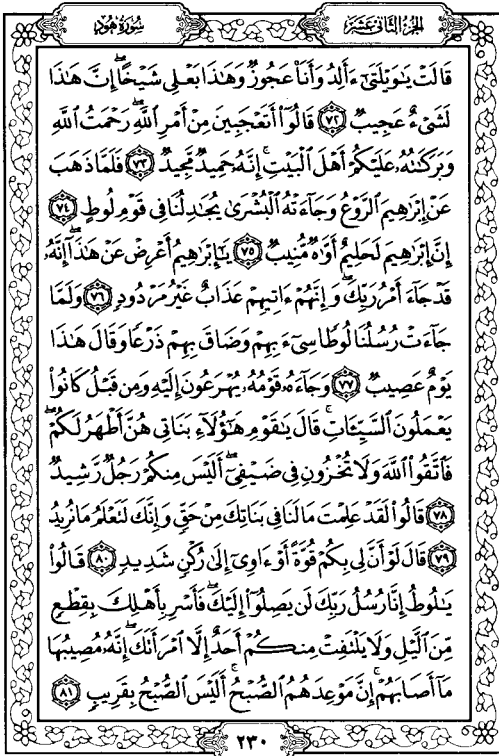 سُورَةُ هُودٍ
الجُزْءُ الثَّانِي عَشَرَ
قَالَتْ يَٰوَيْلَتَىٰٓ ءَأَلِدُ وَأَنَا۠ عَجُوزٌ وَهَٰذَا بَعْلِى شَيْخًا ۖ إِنَّ هَٰذَا
لَشَىْءٌ عَجِيبٌ ۝٧٢ قَالُوٓا۟ أَتَعْجَبِينَ مِنْ أَمْرِ ٱللَّهِ ۖ رَحْمَتُ ٱللَّهِ
وَبَرَكَٰتُهُۥ عَلَيْكُمْ أَهْلَ ٱلْبَيْتِ ۚ إِنَّهُۥ حَمِيدٌ مَّجِيدٌ ۝٧٣ فَلَمَّا ذَهَبَ
عَنْ إِبْرَٰهِيمَ ٱلرَّوْعُ وَجَآءَتْهُ ٱلْبُشْرَىٰ يُجَٰدِلُنَا فِى قَوْمِ لُوطٍ ۝٧٤
إِنَّ إِبْرَٰهِيمَ لَحَلِيمٌ أَوَّٰهٌ مُّنِيبٌ ۝٧٥ يَٰٓإِبْرَٰهِيمُ أَعْرِضْ عَنْ هَٰذَآ ۖ إِنَّهُۥ
قَدْ جَآءَ أَمْرُ رَبِّكَ ۖ وَإِنَّهُمْ ءَاتِيهِمْ عَذَابٌ غَيْرُ مَرْدُودٍ ۝٧٦ وَلَمَّا
جَآءَتْ رُسُلُنَا لُوطًا سِىٓءَ بِهِمْ وَضَاقَ بِهِمْ ذَرْعًا وَقَالَ هَٰذَا
يَوْمٌ عَصِيبٌ ۝٧٧ وَجَآءَهُۥ قَوْمُهُۥ يُهْرَعُونَ إِلَيْهِ وَمِن قَبْلُ كَانُوا۟
يَعْمَلُونَ ٱلسَّيِّـَٔاتِ ۚ قَالَ يَٰقَوْمِ هَٰٓؤُلَآءِ بَنَاتِى هُنَّ أَطْهَرُ لَكُمْ ۖ
فَٱتَّقُوا۟ ٱللَّهَ وَلَا تُخْزُونِ فِى ضَيْفِىٓ ۖ أَلَيْسَ مِنكُمْ رَجُلٌ رَّشِيدٌ
۝٧٨ قَالُوا۟ لَقَدْ عَلِمْتَ مَا لَنَا فِى بَنَاتِكَ مِنْ حَقٍّ وَإِنَّكَ لَتَعْلَمُ مَا نُرِيدُ
۝٧٩ قَالَ لَوْ أَنَّ لِى بِكُمْ قُوَّةً أَوْ ءَاوِىٓ إِلَىٰ رُكْنٍ شَدِيدٍ ۝٨٠ قَالُوا۟
يَٰلُوطُ إِنَّا رُسُلُ رَبِّكَ لَن يَصِلُوٓا۟ إِلَيْكَ ۖ فَأَسْرِ بِأَهْلِكَ بِقِطْعٍ
مِّنَ ٱلَّيْلِ وَلَا يَلْتَفِتْ مِنكُمْ أَحَدٌ إِلَّا ٱمْرَأَتَكَ ۖ إِنَّهُۥ مُصِيبُهَا
مَآ أَصَابَهُمْ ۚ إِنَّ مَوْعِدَهُمُ ٱلصُّبْحُ ۚ أَلَيْسَ ٱلصُّبْحُ بِقَرِيبٍ ۝٨١
٢٣٠